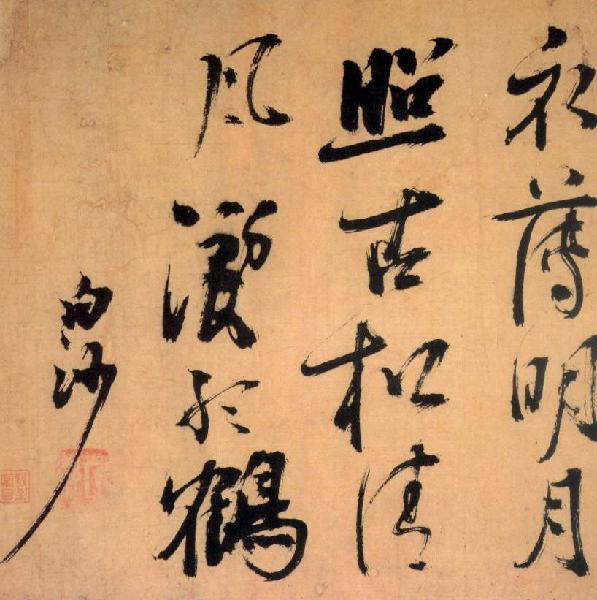 衣薄明月
照古松清
風鶴
白沙